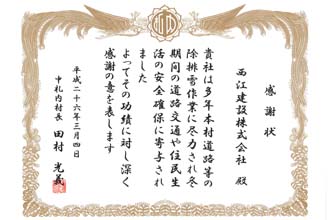 感謝状
西江建設株式会社 殿
貴社は多年本村道路等の
除排雪作業に尽力され冬
期間の道路交通や住民生
活の安全確保に寄与され
ました
よってその功績に対し深く
感謝の意を表します
平成二十六年三月四日
中札内村長 田村 光義